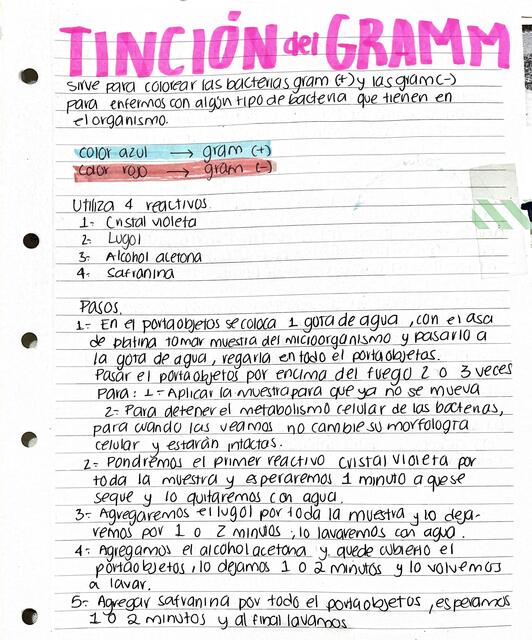 TINCIÓN del GRAMM
Sirve para colorear las bacterias gram (+) y las gram (-)
para enfermos con algún tipo de bacteria que tienen en
el organismo.
color azul → gram (+)
color rojo → gram (-)
Utiliza 4 reactivos
1- Cristal violeta
2- Lugol
3- Alcohol acetona
4- Safranina
Pasos.
1- En el portaobjetos se coloca 1 gota de agua, con el asa
de platina tomar muestra del microorganismo y pasarlo a
la gota de agua, regarla en todo el portaobjetas.
Pasar el portaobjetos por encima del fuego 2 o 3 veces
Para: 1- Aplicar la muestra para que ya no se mueva
2- Para detener el metabolismo celular de las bacterias,
para cuando las veamos no cambie su morfología
celular y estarán intactas.
2- Pondremos el primer reactivo cristal violeta por
toda la muestra y esperaremos 1 minuto a que se
seque y lo quitaremos con agua.
3- Agregaremos el lugol por toda la muestra y lo deja-
remos por 1 o 2 minutos, lo lavaremos con agua.
4- Agregamos el alcohol acetona y quede cubierto el
portaobjetos, lo dejamos 1 o 2 minutos y lo volvemos
a lavar.
5- Agregar safranina por todo el portaobjetos, esperamos
1 o 2 minutos y al final lavamos